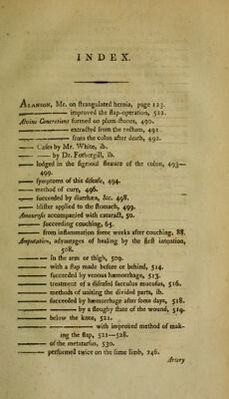 INDEX.
ALANSON, Mr. on ſtrangulated hernia, page 123.
——— improved the flap-operation, 522.
Alvine Concretions formed on plum-ſtones, 490.
——— extracted from the rectum, 491.
——— from the colon after death, 492.
——— Caſes by Mr. White, ib.
——— by Dr. Fothergill, ib.
——— lodged in the ſigmoid flexure of the colon, 493—
499.
——— ſymptoms of this diſeaſe, 494.
——— method of cure, 496.
——— ſucceeded by diarrhœa, &c. 498.
——— bliſter applied to the ſtomach, 499.
Amauroſis accompanied with cataract, 50.
——— ſucceeding couching, 65.
——— from inflammation ſome weeks after couching, 88.
Amputation, advantages of healing by the firſt intention,
508.
——— in the arm or thigh, 509.
——— with a flap made before or behind, 514.
——— ſucceeded by venous hæmorrhage, 513.
——— treatment of a diſeaſed ſacculus mucoſus, 516.
——— methods of uniting the divided parts, ib.
——— ſucceeded by hæmorrhage after ſome days, 518.
——— by a ſloughy ſtate of the wound, 519.
——— below the knee, 521.
——— with improved method of mak-
ing the flap, 521—528.
——— of the metatarſus, 530.
——— performed twice on the ſame limb, 246.
Artery